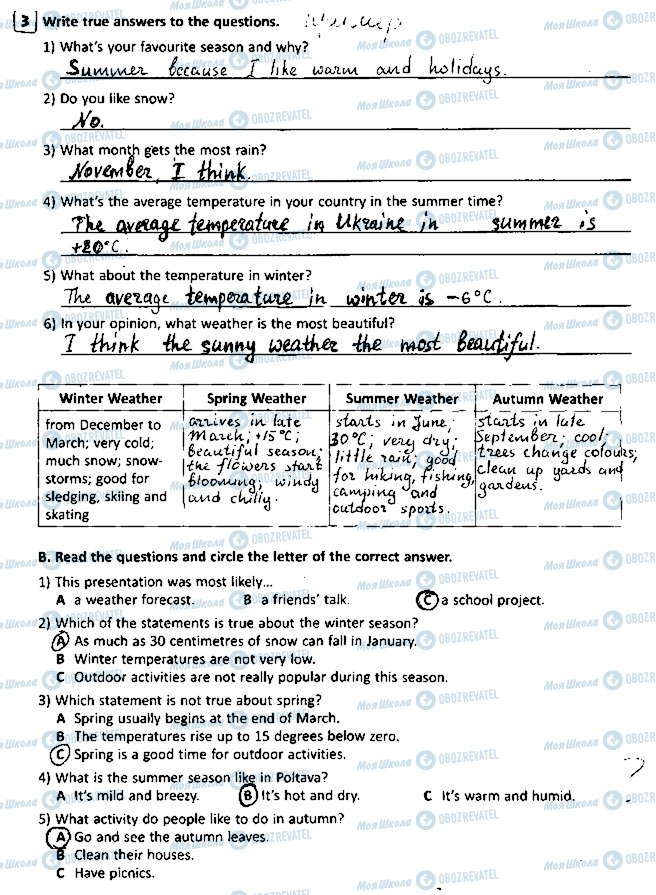 3 Write true answers to the questions. Приклад
1) What's your favourite season and why?
Summer because I like warm and holidays.
2) Do you like snow?
No.
3) What month gets the most rain?
November, I think.
4) What's the average temperature in your country in the summer time?
The average temperature in Ukraine in summer is
+20°C.
5) What about the temperature in winter?
The average temperature in winter is -6°C.
6) In your opinion, what weather is the most beautiful?
I think the sunny weather the most beautiful.
Winter Weather Spring Weather Summer Weather Autumn Weather
from December to
March; very cold;
much snow; snow-
storms; good for
sledging, skiing and
skating
arrives in late
March; +15°C;
beautiful season;
the flowers start
blooming; windy
and chilly.
starts in June,
30°C; very dry;
little rain; good
for hiking, fishing,
camping and
outdoor sports.
starts in late
September; cool,
trees change colours;
clean up yards and
gardens.
B. Read the questions and circle the letter of the correct answer.
1) This presentation was most likely...
A a weather forecast. B a friends' talk. C a school project.
2) Which of the statements is true about the winter season?
A As much as 30 centimetres of snow can fall in January.
B Winter temperatures are not very low.
C Outdoor activities are not really popular during this season.
3) Which statement is not true about spring?
A Spring usually begins at the end of March.
B The temperatures rise up to 15 degrees below zero.
C Spring is a good time for outdoor activities.
4) What is the summer season like in Poltava?
A It's mild and breezy. B It's hot and dry. C It's warm and humid.
5) What activity do people like to do in autumn?
A Go and see the autumn leaves.
B Clean their houses.
C Have picnics.
Моя Школа OBOZREVATEL